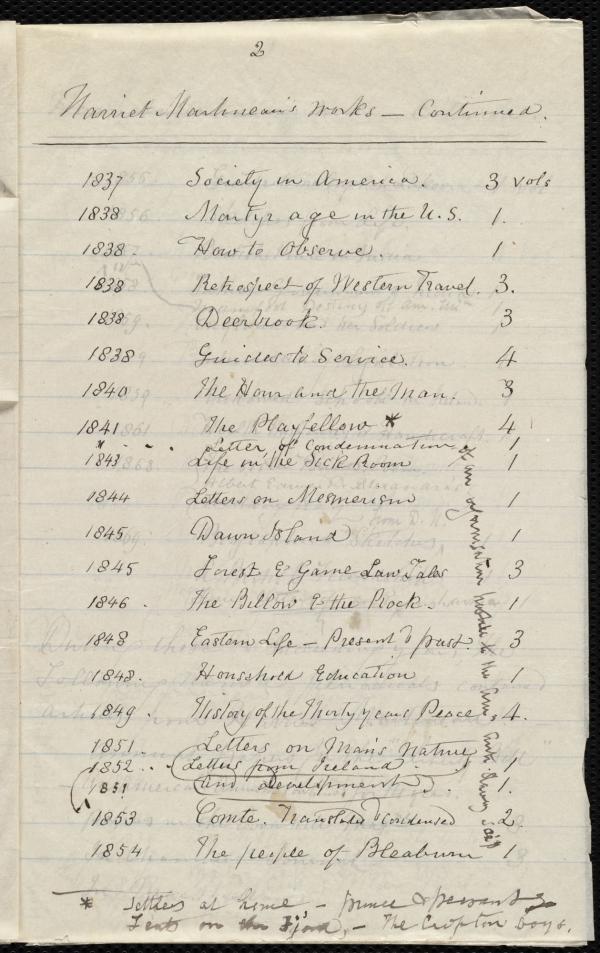 2
Harriet Martineau's works — Continued.
1837 Society in America. 3 vols
1838 Martyr age in the U.S. 1.
1838. How to Observe. 1
1838 Retrospect of Western Travel. 3.
1838 Deerbrook. 3
1838 Guides to Service. 4
1840 The Hour and the Man. 3
1841 The Playfellow * 4
" - - Letter, of Condemnation 1
of an organisation hostile to the Am. Anti Slavery Soc'y
1843 Life in the Sick Room 1
1844 Letters on Mesmerism 1
1845 Dawn Island 1
1845 Forest & Game Law Tales 3
1846. The Billow & the Rock. 1
1848 Eastern Life — Present & past. 3
1848. Household Education 1
1849. History of the Thirty years Peace, 4.
1851. Letters on Man's Nature
1852.. Letters from Ireland. 1
1851 and development. 1.
1853 Comte. Translated & condensed 2.
1854 The people of Bleaburn 1
* Settlers at home — prince & peasant
Feats on the Fjord, — The Crofton boys.